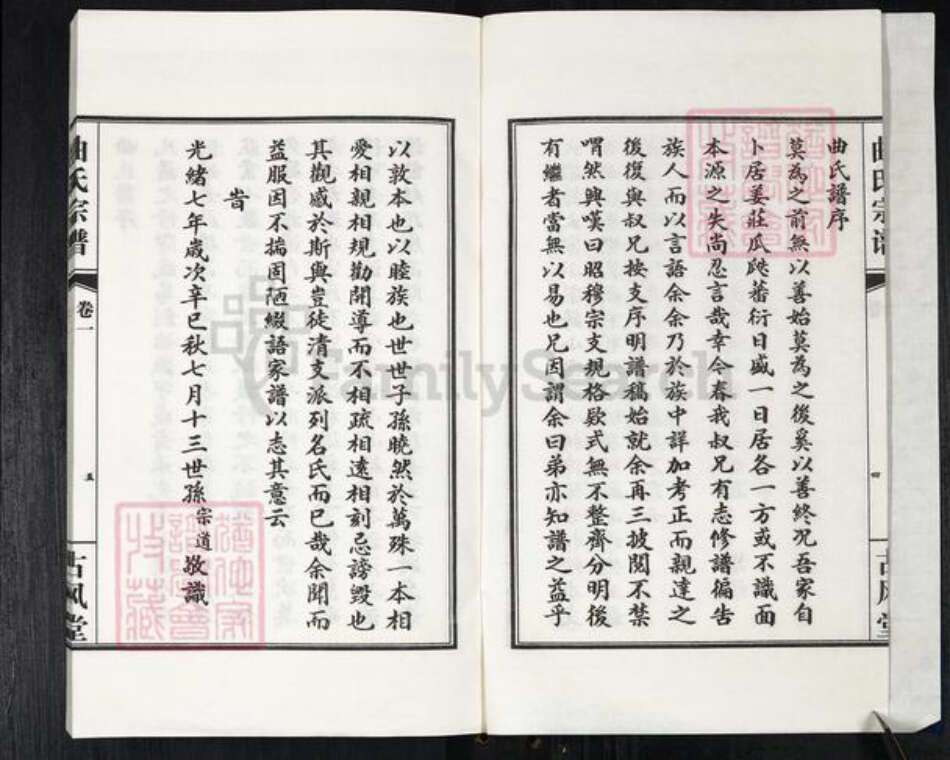 曲氏譜序
莫為之前無以善始莫為之後奚以善終况吾家自
卜居姜莊瓜瓞蕃衍日盛一日居各一方或不識面
本源之失尚忍言哉幸今春我叔兄有志修譜徧告
族人而以言語余余乃於族中詳加考正而親達之
後復與叔兄按支序明譜稿始就余再三披閱不禁
喟然興嘆曰昭穆宗支規格欵式無不整齊分明後
有繼者當無以易也兄因謂余曰弟亦知譜之益乎
四
以敦本也以睦族也世世子孫曉然於萬殊一本相
愛相親相規勸開導而不相疏相遠相刻忌謗毀也
其觀感於斯與豈徒清支派列名氏而已哉余聞而
益服因不揣固陋綴語家譜以志其意云
旹
光緒七年歲次辛巳秋七月十三世孫宗道敬識
曲氏宗譜
卷一
五
古风堂
FamilySearch